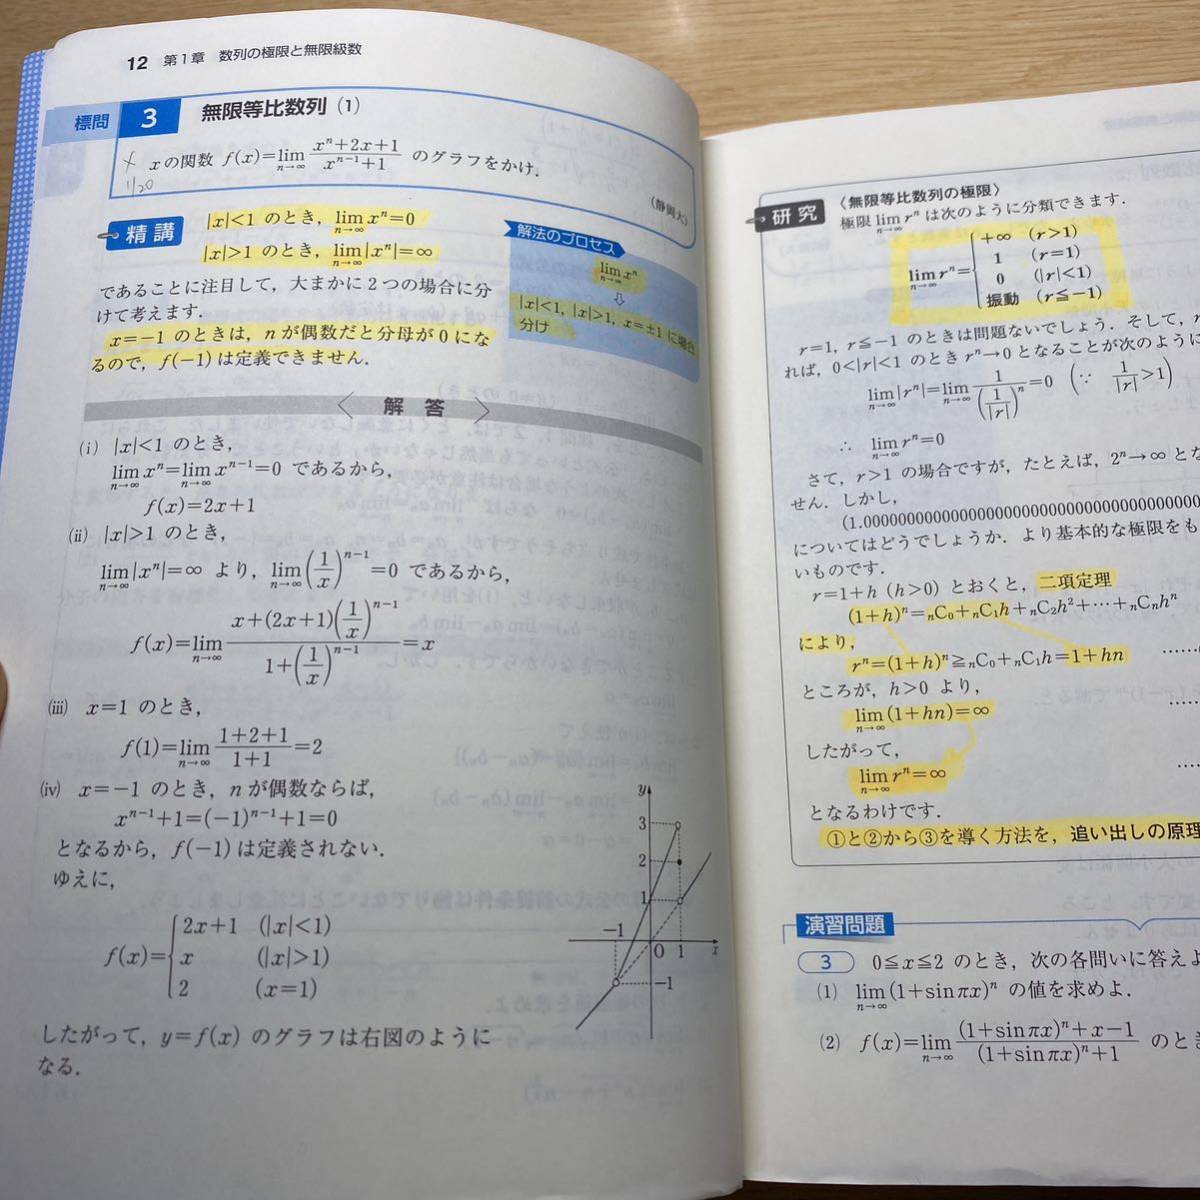 12 第1章 数列の極限と無限級数
標問 3 無限等比数列 (1)
xの関数 f(x)=lim_{n→∞} (xⁿ+2x+1)/(xⁿ⁻¹+1) のグラフをかけ.
1/20
(静岡大)
精講
|x|<1 のとき, lim_{n→∞} xⁿ=0
|x|>1 のとき, lim_{n→∞} |xⁿ|=∞
であることに注目して, 大まかに2つの場合に分
けて考えます.
x=-1 のときは, nが偶数だと分母が0にな
るので, f(-1)は定義できません.
解法のプロセス
lim_{n→∞} xⁿ
⇩
|x|<1, |x|>1, x=±1 に場合
分け
解答
(i) |x|<1 のとき,
lim_{n→∞} xⁿ=lim_{n→∞} xⁿ⁻¹=0 であるから,
f(x)=2x+1
(ii) |x|>1 のとき,
lim_{n→∞} |xⁿ|=∞ より, lim_{n→∞} (1/x)ⁿ⁻¹=0 であるから,
f(x)=lim_{n→∞} (x+(2x+1)(1/x)ⁿ⁻¹)/(1+(1/x)ⁿ⁻¹)=x
(iii) x=1 のとき,
f(1)=lim_{n→∞} (1+2+1)/(1+1)=2
(iv) x=-1 のとき, nが偶数ならば,
xⁿ⁻¹+1=(-1)ⁿ⁻¹+1=0
となるから, f(-1)は定義されない.
ゆえに,
f(x)={ 2x+1 (|x|<1)
x (|x|>1)
2 (x=1)
したがって, y=f(x) のグラフは右図のように
なる.
y
3
2
1
-1
O 1 x
-1
研究 〈無限等比数列の極限〉
極限 lim_{n→∞} rⁿ は次のように分類できます.
lim_{n→∞} rⁿ={ +∞ (r>1)
1 (r=1)
0 (|r|<1)
振動 (r≦-1)
r=1, r≦-1 のときは問題ないでしょう. そして, r
れば, 0<|r|<1 のとき rⁿ→0 となることが次のように
lim_{n→∞} |rⁿ|=lim_{n→∞} 1/(1/|r|)ⁿ=0 (∵ 1/|r|>1)
∴ lim_{n→∞} rⁿ=0
さて, r>1 の場合ですが, たとえば, 2ⁿ→∞ とな
せん. しかし,
(1.00000000000000000000000000000000000000
についてはどうでしょうか. より基本的な極限をも
いものです.
r=1+h (h>0) とおくと, 二項定理
(1+h)ⁿ=ₙC₀+ₙC₁h+ₙC₂h²+…+ₙCₙhⁿ
により,
rⁿ=(1+h)ⁿ≧ₙC₀+ₙC₁h=1+hn ……
ところが, h>0 より,
lim_{n→∞} (1+hn)=∞ ……
したがって,
lim_{n→∞} rⁿ=∞ ……
となるわけです.
①と②から③を導く方法を, 追い出しの原理
演習問題
3 0≦x≦2 のとき, 次の各問いに答えよ
(1) lim_{n→∞} (1+sinπx)ⁿ の値を求めよ.
(2) f(x)=lim_{n→∞} ((1+sinπx)ⁿ+x-1)/((1+sinπx)ⁿ+1) のとき